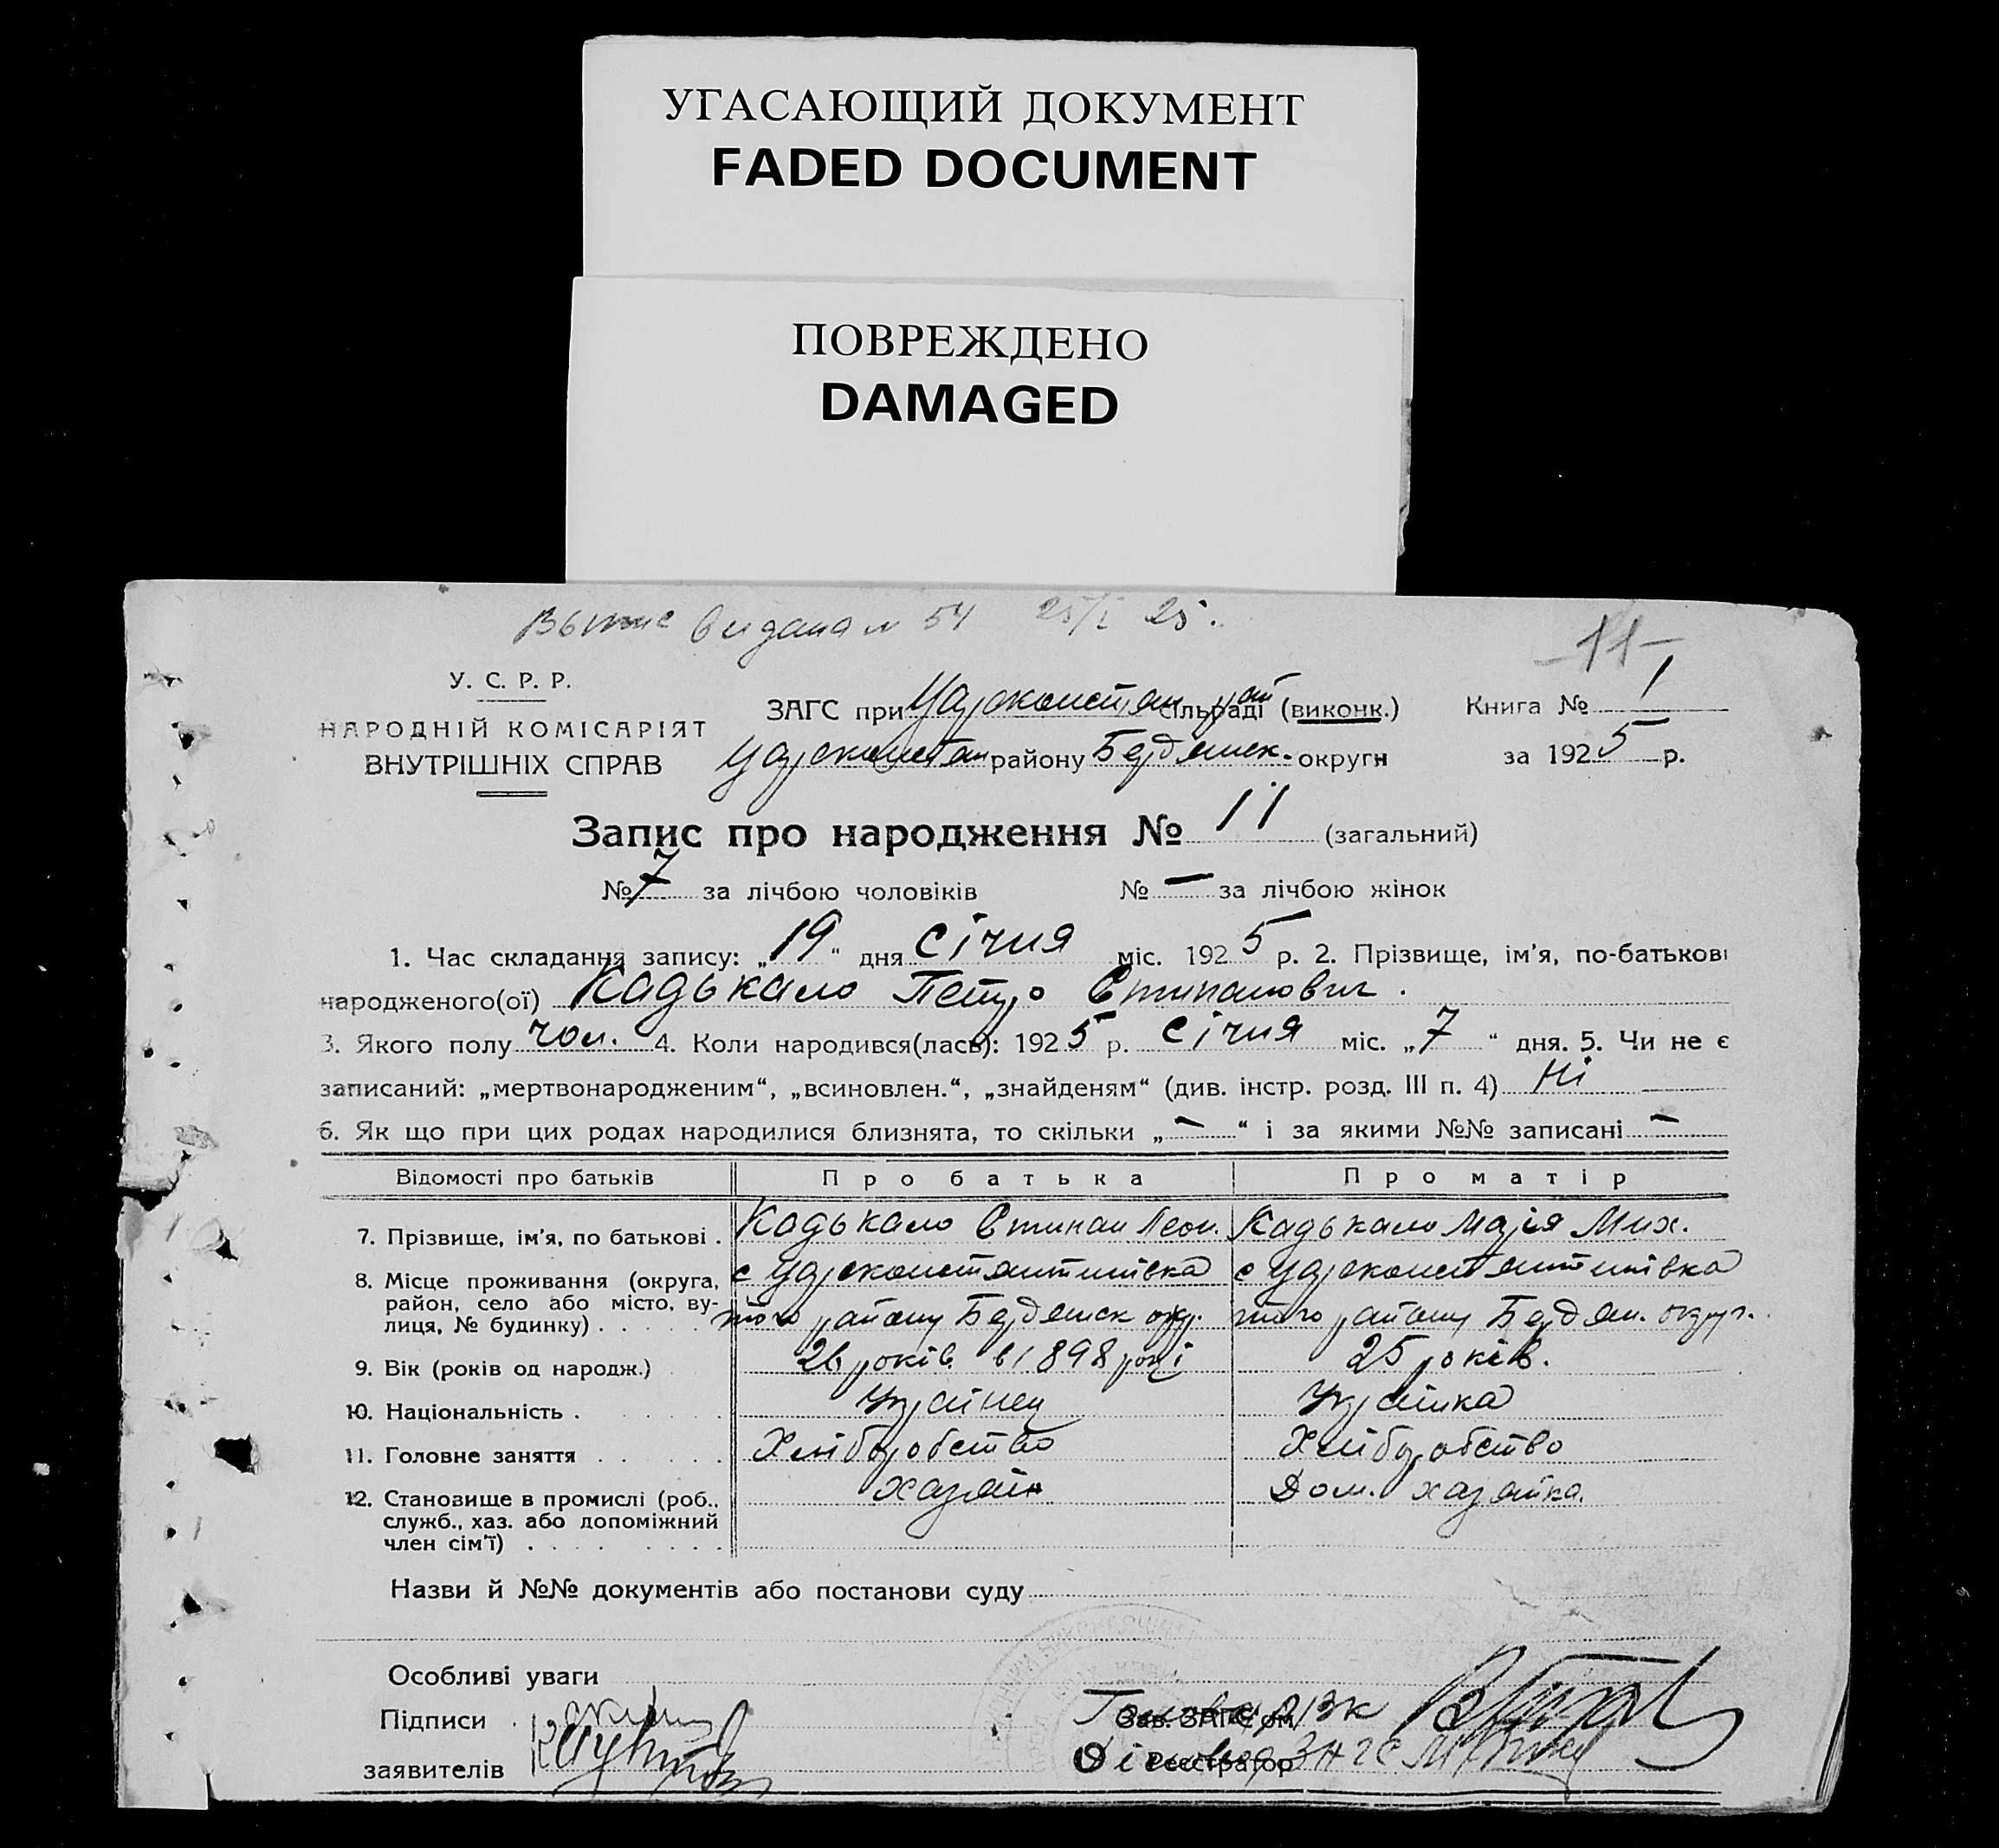 УГАСАЮЩИЙ ДОКУМЕНТ
FADED DOCUMENT
ПОВРЕЖДЕНО
DAMAGED
Выпис видана № 54 25/I 25.
-11-
У. С. Р. Р.
НАРОДНІЙ КОМІСАРІЯТ
ВНУТРІШНІХ СПРАВ
ЗАГС при Царєконстан рай сільраді (виконк.)
Царєконстан району Бердянск. округи
Книга № 1
за 1925 р.
Запис про народження № 11 (загальний)
№ 7 за лічбою чоловіків № — за лічбою жінок
1. Час складання запису: „19“ дня Січня міс. 1925 р. 2. Прізвище, ім'я, по-батькові
народженого(ої) Кадькало Петро Стипанович.
3. Якого полу чол. 4. Коли народився(лась): 1925 р. Січня міс. „7“ дня. 5. Чи не є
записаний: „мертвонародженим“, „всиновлен.“, „знайденям“ (див. інстр. розд. III п. 4) Ні
6. Як що при цих родах народилися близнята, то скільки „—“ і за якими №№ записані —
Відомості про батьків Про батька Про матір
7. Прізвище, ім'я, по батькові . Кадькало Стипан Леон. Кадькало Марія Мих.
8. Місце проживання (округа, район, село або місто, вулиця, № будинку) . . . . .
с Царєконстянтинівка
того району Бердянск окр.
с Царєконстянтинівка
того району Бердян. округ.
9. Вік (років од народж.) 26 років в 1898 році 25 років.
10. Національність . Українец Українка
11. Головне заняття . . . . . Хліборобство Хліборобство
12. Становище в промислі (роб., служб., хаз. або допоміжний член сім'ї) . . . .
Хазяін Дом. хазяйка.
Назви й №№ документів або постанови суду
Особливі уваги
Підписи
заявителів
Голова РВК
Зав. ЗАГС'ом
Реєстратор